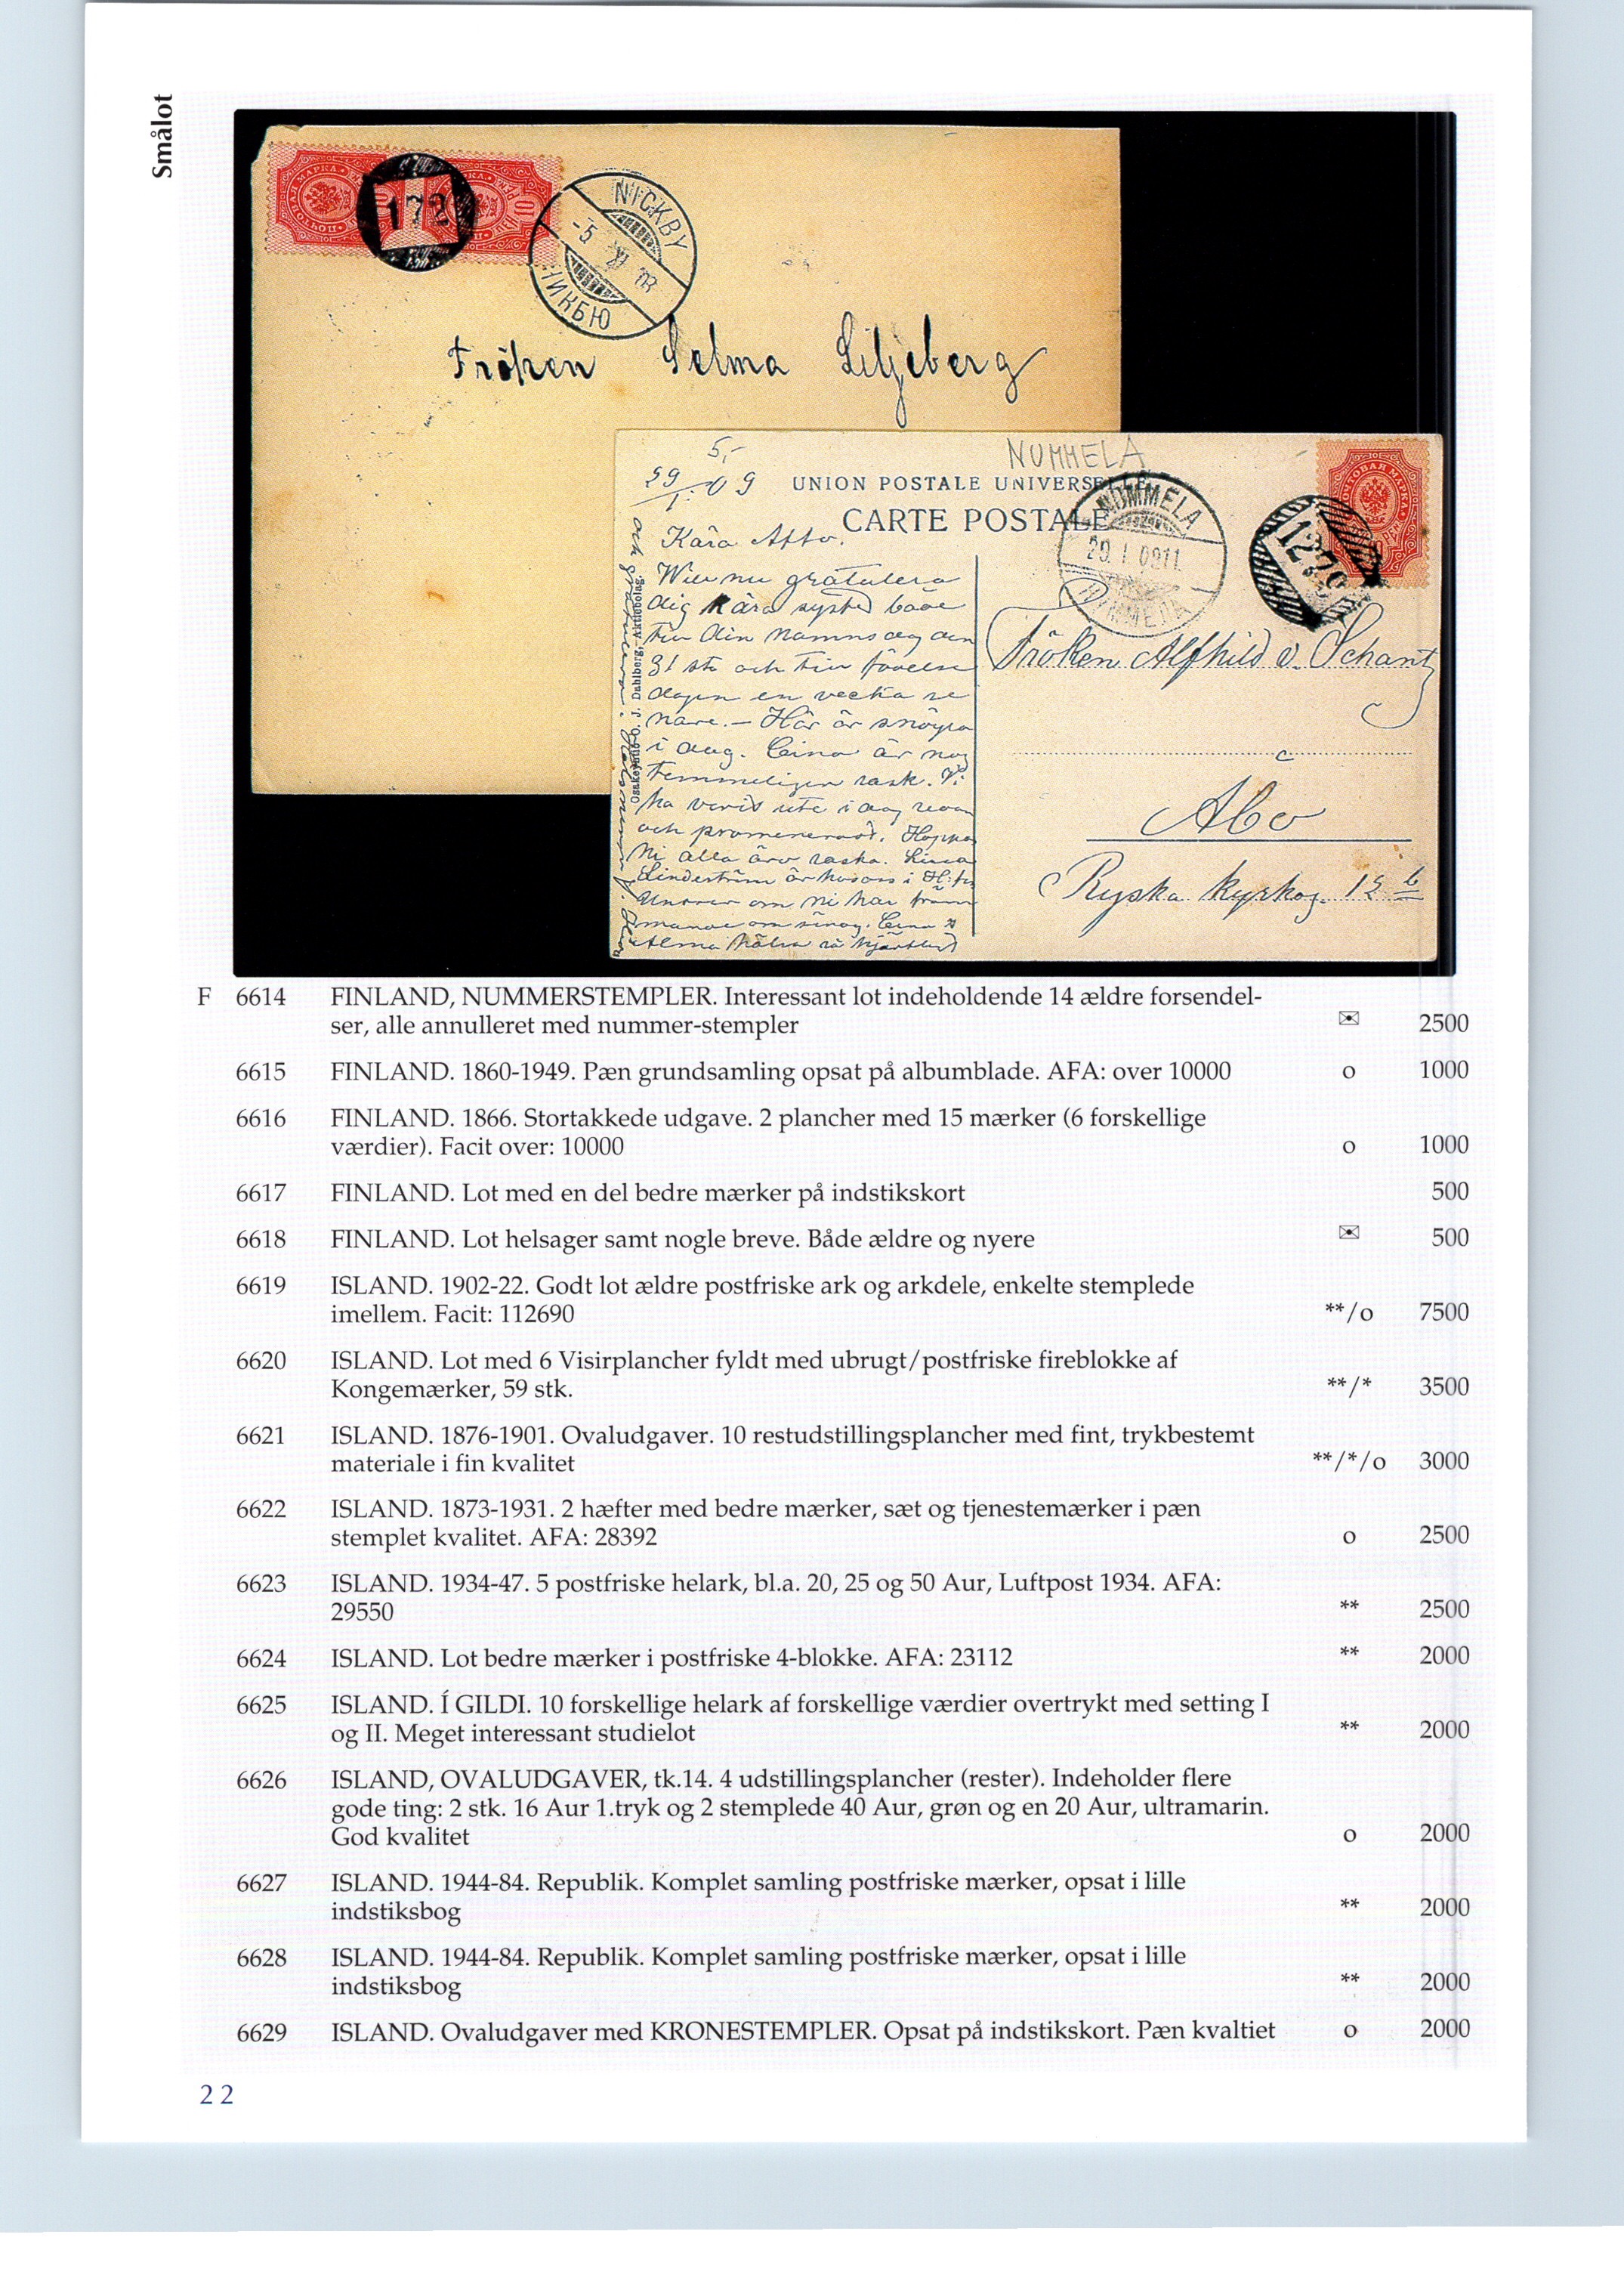 Smålot
172
NICKBY
-5 XI 03
НИКБЮ
Fröken Selma Liljeberg
5,-
NUMMELA
29/1. 09
UNION POSTALE UNIVERSELLE
CARTE POSTALE
NUMMELA
29.I.0911
1270
Kära Affo.
Will nu gratulera
dig kära syster både
till din namnsdag den
31 sta och till födelse
dagen en vecka se
nare. – Här är snöyra
i dag. Cina är nog
temmeligen rask. Vi
ha varit ute i dag
och promenerat. Hoppas
Ni alla äro raska.
Lindeström är hos oss i
om ni har
Osakeyhtiö O. J. Dahlberg, Aktiebolag.
Fröken Alfhild v. Schantz
Åbo
Ryska kyrkog. 15 b
F 6614 FINLAND, NUMMERSTEMPLER. Interessant lot indeholdende 14 ældre forsendel-
ser, alle annulleret med nummer-stempler ✉ 2500
6615 FINLAND. 1860-1949. Pæn grundsamling opsat på albumblade. AFA: over 10000 o 1000
6616 FINLAND. 1866. Stortakkede udgave. 2 plancher med 15 mærker (6 forskellige
værdier). Facit over: 10000 o 1000
6617 FINLAND. Lot med en del bedre mærker på indstikskort 500
6618 FINLAND. Lot helsager samt nogle breve. Både ældre og nyere ✉ 500
6619 ISLAND. 1902-22. Godt lot ældre postfriske ark og arkdele, enkelte stemplede
imellem. Facit: 112690 **/o 7500
6620 ISLAND. Lot med 6 Visirplancher fyldt med ubrugt/postfriske fireblokke af
Kongemærker, 59 stk. **/* 3500
6621 ISLAND. 1876-1901. Ovaludgaver. 10 restudstillingsplancher med fint, trykbestemt
materiale i fin kvalitet **/*/o 3000
6622 ISLAND. 1873-1931. 2 hæfter med bedre mærker, sæt og tjenestemærker i pæn
stemplet kvalitet. AFA: 28392 o 2500
6623 ISLAND. 1934-47. 5 postfriske helark, bl.a. 20, 25 og 50 Aur, Luftpost 1934. AFA:
29550 ** 2500
6624 ISLAND. Lot bedre mærker i postfriske 4-blokke. AFA: 23112 ** 2000
6625 ISLAND. Í GILDI. 10 forskellige helark af forskellige værdier overtrykt med setting I
og II. Meget interessant studielot ** 2000
6626 ISLAND, OVALUDGAVER, tk.14. 4 udstillingsplancher (rester). Indeholder flere
gode ting: 2 stk. 16 Aur 1.tryk og 2 stemplede 40 Aur, grøn og en 20 Aur, ultramarin.
God kvalitet o 2000
6627 ISLAND. 1944-84. Republik. Komplet samling postfriske mærker, opsat i lille
indstiksbog ** 2000
6628 ISLAND. 1944-84. Republik. Komplet samling postfriske mærker, opsat i lille
indstiksbog ** 2000
6629 ISLAND. Ovaludgaver med KRONESTEMPLER. Opsat på indstikskort. Pæn kvaltiet o 2000
22